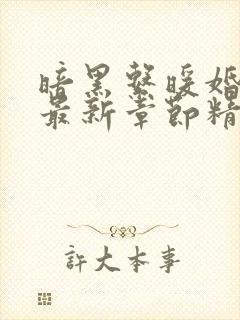 暗黑系暖婚
最新章节精
许大本事